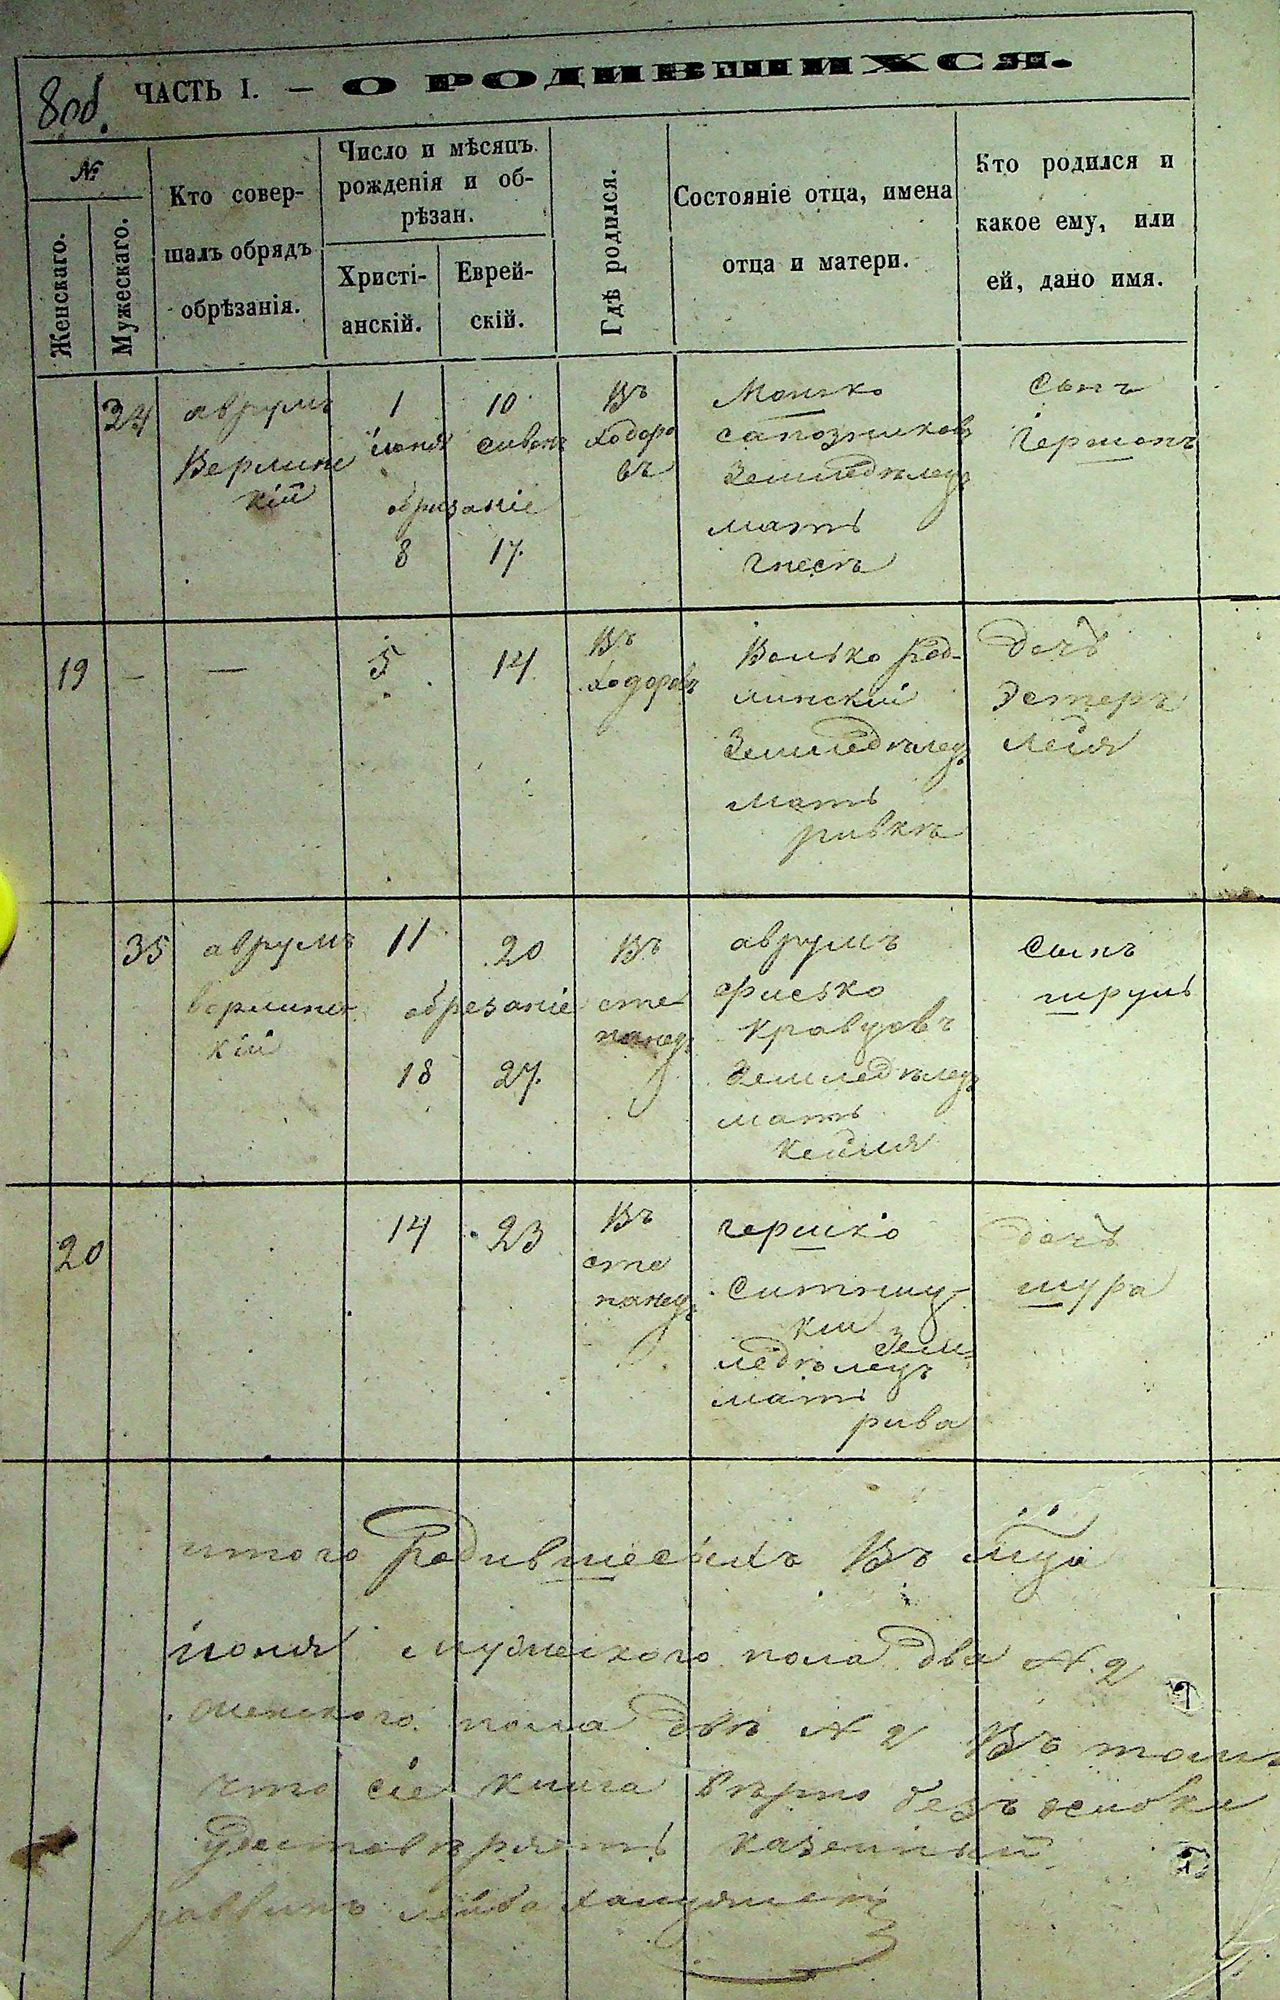 8 об.
ЧАСТЬ I. — О РОДИВШИХСЯ.
№
Женскаго.
Мужескаго.
Кто совер-
шалъ обрядъ
обрѣзанія.
Число и мѣсяцъ
рожденія и об-
рѣзан.
Христі-
анскій.
Еврей-
скій.
Гдѣ родился.
Состояніе отца, имена
отца и матери.
Кто родился и
какое ему, или
ей, дано имя.
34
аврумъ
Верлинс
кій
1
іюня
10
сивонъ
обризаніе
8
17.
Въ
ходоро
въ
Мошко
сапозниковъ
Земледѣлецъ
мать
гнесъ
Сынъ
Гершонъ
19
—
—
5
14
Въ
ходоровъ
Волько
линскій
Земледѣлецъ
мать
ривкъ
дочь
Эстеръ
лея
35
аврумъ
верлинс
кій
11
20
обрезаніе
18
27.
Въ
сте
панец
аврумъ
фисько
кравцовъ
Земледѣлецъ
мать
Сынъ
шруль
20
14
23
Въ
сте
панец
гершко
Ситниц
кій Зем
ледѣлецъ
мать
рива
дочь
шура
итого Родившесихъ Въ мца
іюня мужескаго пола два № 2
женскаго пола двѣ № 2 Въ томъ
что сіе книга вѣрно безъ
удостовѣряетъ казенный
раввинъ лейба